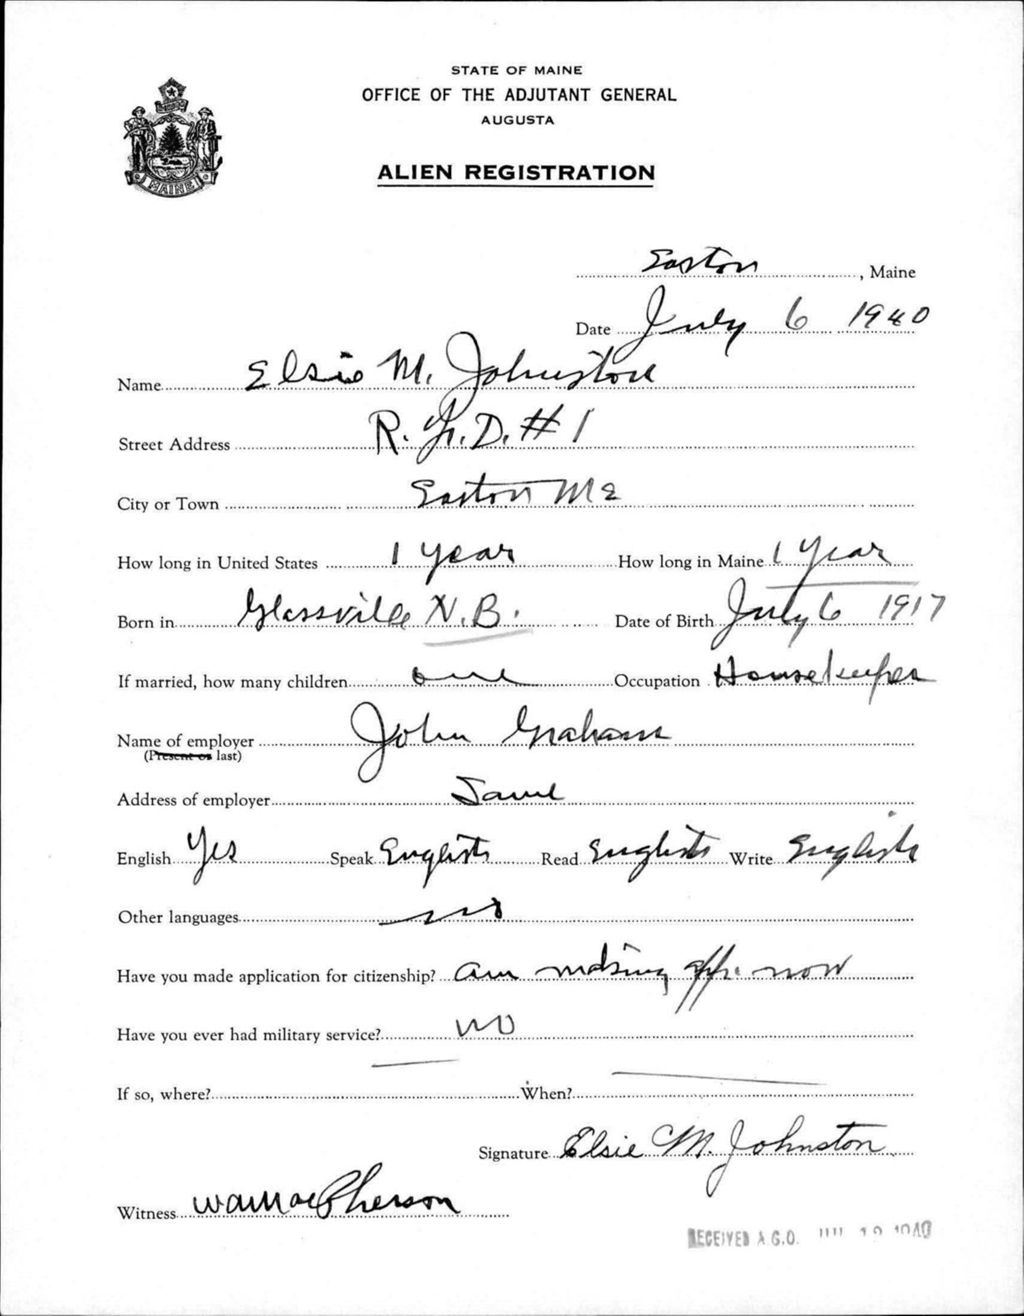 STATE OF MAINE
OFFICE OF THE ADJUTANT GENERAL
AUGUSTA
ALIEN REGISTRATION
MAINE
Easton, Maine
Date July 6 1940
Name Elsie M. Johnston
Street Address R.F.D. #1
City or Town Easton Me
How long in United States 1 year How long in Maine 1 Year
Born in Glassville N.B. Date of Birth July 6 1917
If married, how many children one Occupation Housekeeper
Name of employer John Graham
(Present or last)
Address of employer Same
English Yes Speak English Read English Write English
Other languages no
Have you made application for citizenship? am making app. now
Have you ever had military service? no
If so, where? When?
Signature Elsie M. Johnston
Witness
RECEIVED A.G.O. 1940